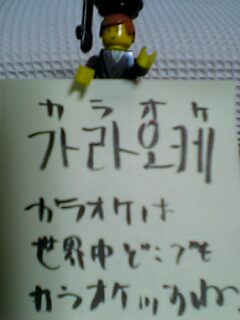 カラオケ
가라오케
カラオケは
世界中どこでも
カラオケ